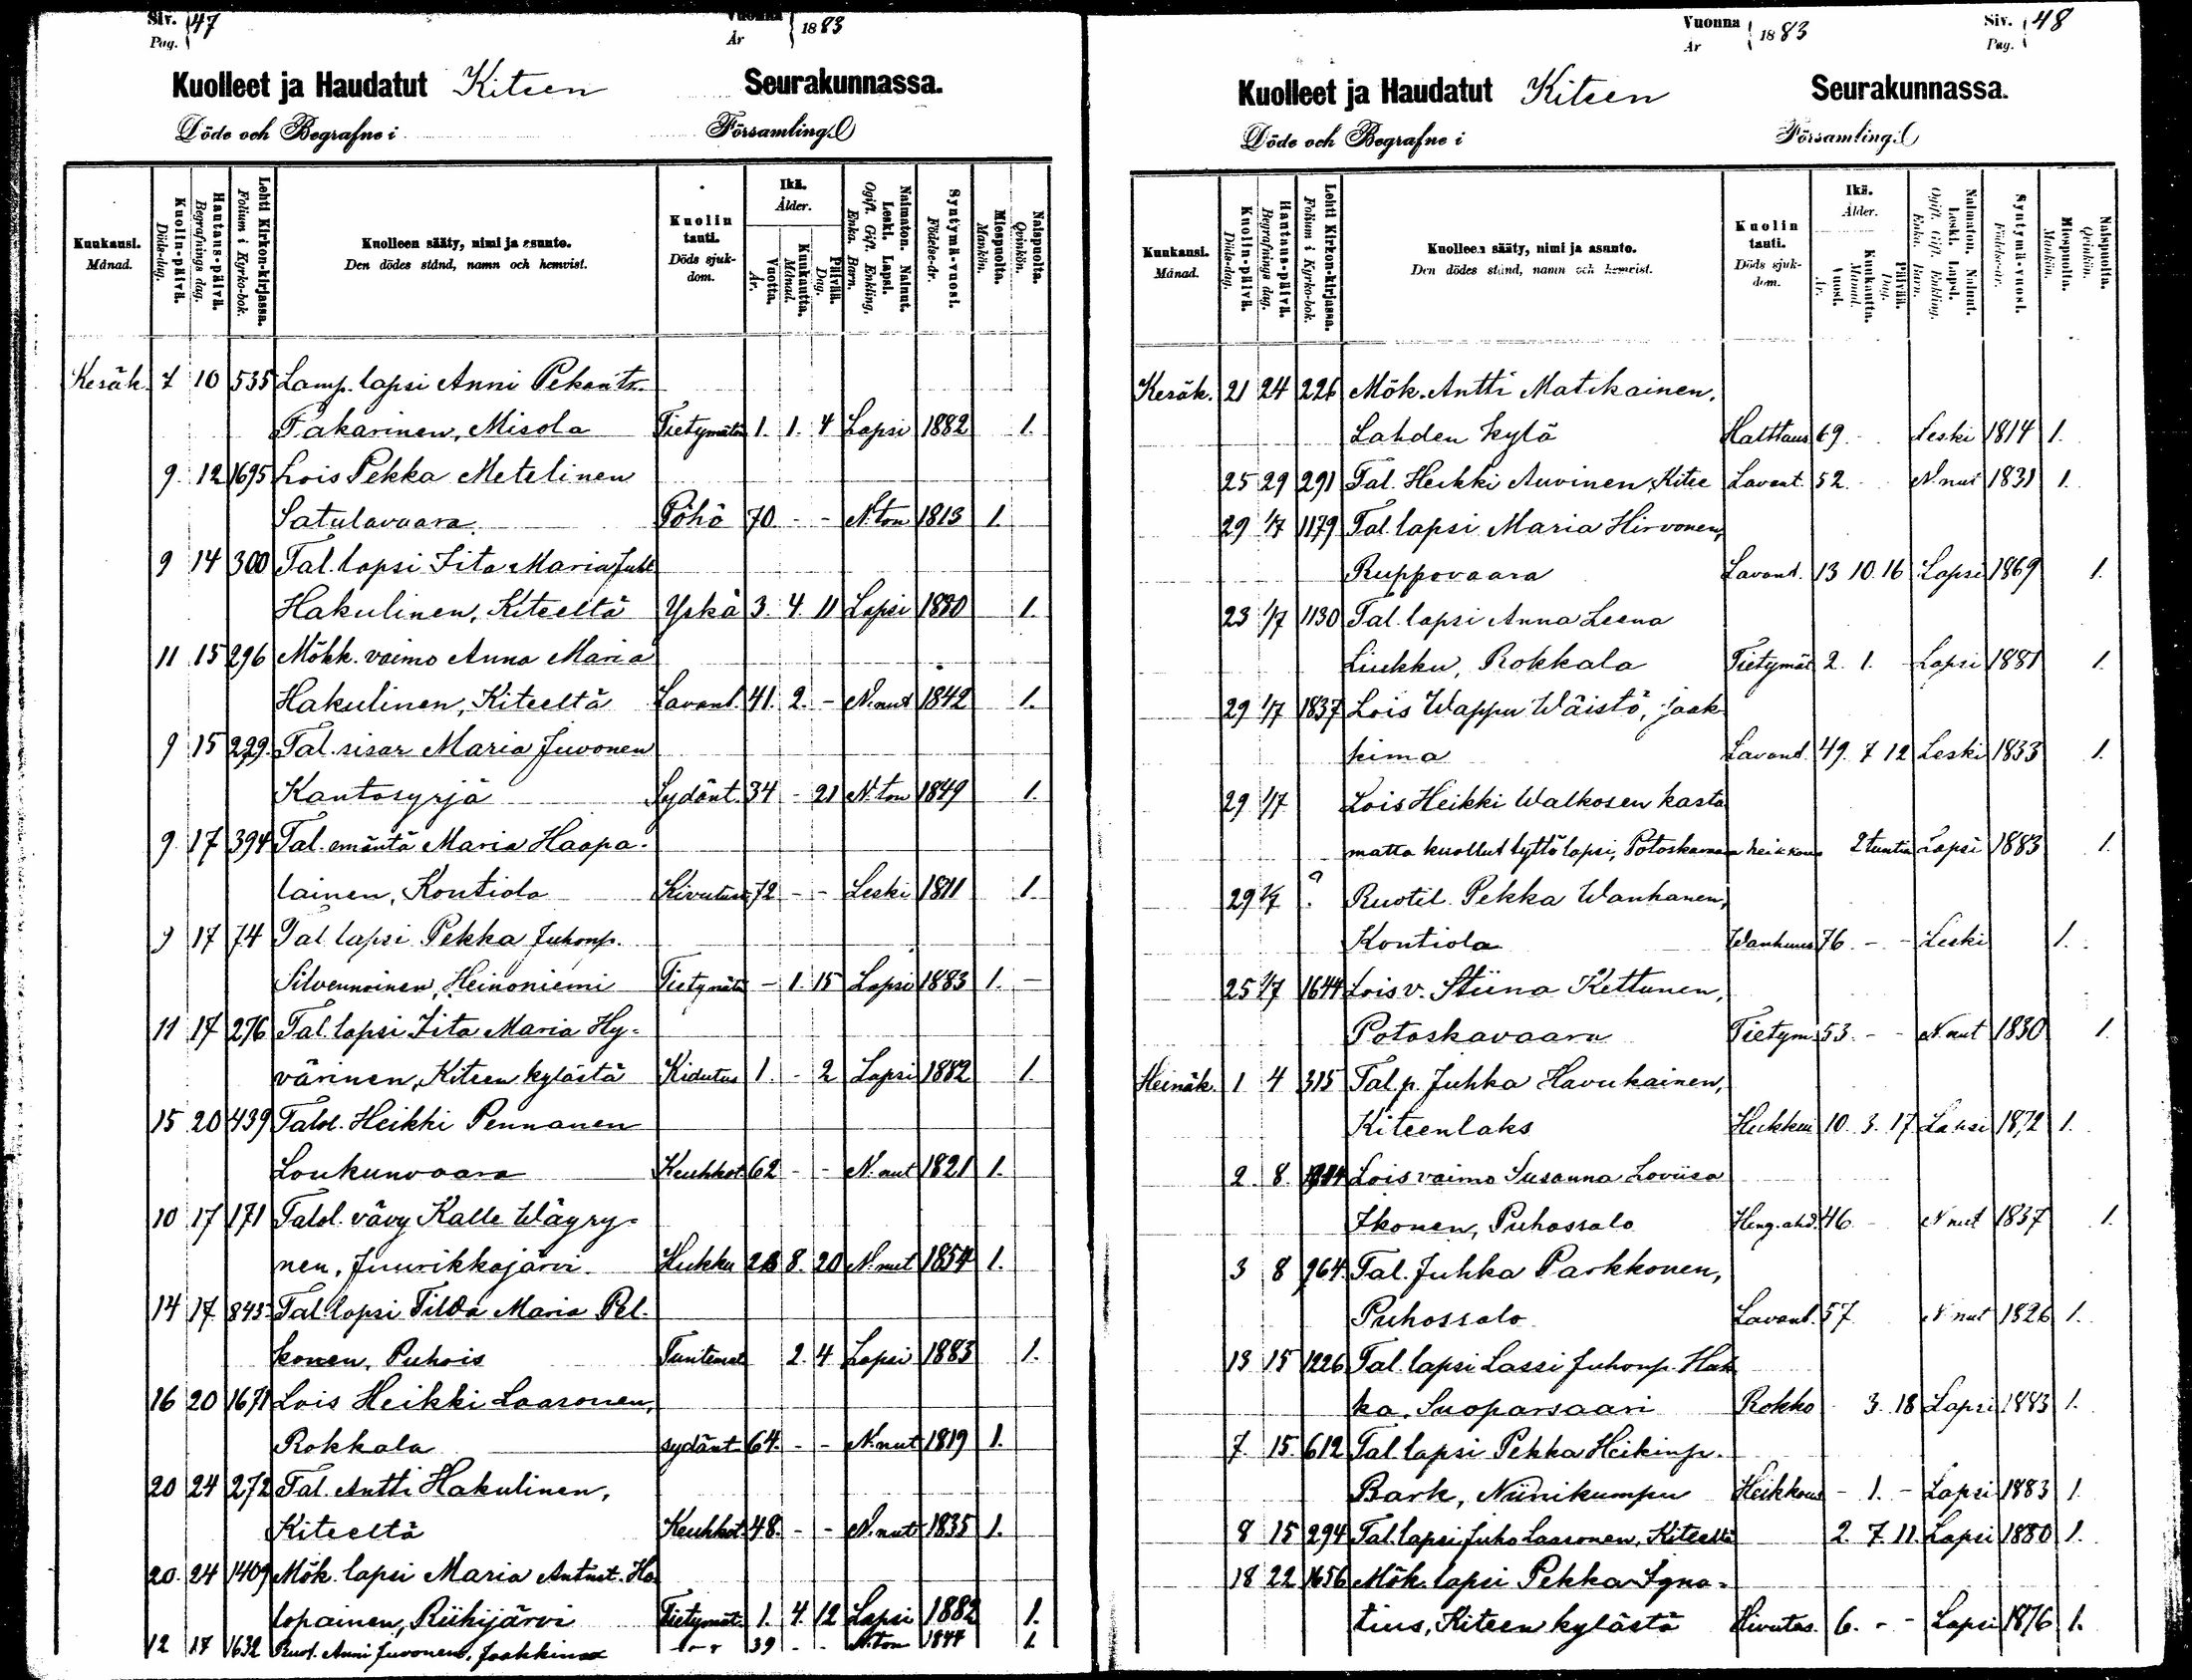 Siv. 47
Pag.
Vuonna 1883
År
Kuolleet ja Haudatut Kiteen Seurakunnassa.
Döde och Begrafne i Församling.
Kuukausi. Månad.
Kuolin-päivä. Döds-dag.
Hautaus-päivä. Begrafnings dag.
Lehti Kirkon-kirjassa. Folium i Kyrko-bok.
Kuolleen sääty, nimi ja asunto.
Den dödes stånd, namn och hemvist.
Kuolin tauti. Döds sjukdom.
Ikä. Ålder.
Vuotta. År.
Kuukautta. Månad.
Päivää. Dag.
Naimaton. Nainut. Leski. Lapsi. Ogift. Gift. Enkling. Enka. Barn.
Syntymä-vuosi. Födelse-år.
Miespuolta. Mankön.
Naispuolta. Qvinkön.
Kesäk. 7 10 535 Lamp. lapsi Anni Pekantr.
Takarinen, Misola Tietymätön 1. 1. 4 Lapsi 1882 1.
9. 12 1695 Lois Pekka Metelinen
Satulavaara Pöhö 70 - - N:ton 1813 1.
9 14 300 Tal. lapsi Iita Maria Juht
Hakulinen, Kiteeltä Yskä 3. 4. 11 Lapsi 1880 1.
11 15 296 Mökk. vaimo Anna Maria
Hakulinen, Kiteeltä Lavant. 41. 2. - N:nut 1842 1.
9 15 229. Tal. sisar Maria Juvonen
Kantosyrjä Sydänt. 34 - 21 N:ton 1849 1.
9. 17 394 Tal. emäntä Maria Haapa-
lainen, Kontiola Kivutus 72 - - Leski 1811 1.
9 17 74 Tal lapsi Pekka Juhonp.
Silvennoinen, Heinoniemi Tietymätö - 1. 15 Lapsi 1883 1. -
11 17 276 Tal. lapsi Iita Maria Hy-
värinen, Kiteen kylästä Kidutus 1. - 2 Lapsi 1882 1.
15 20 439 Talol. Heikki Pennanen
Loukunvaara Keuhkot. 62 - - N:nut 1821 1.
10 17 171 Talol. vävy Kalle Wäyry-
nen, Juurikkajärvi. Hukku 28 8. 20 N:nut 1854 1.
14 17 843 Tal lapsi Tilda Maria Pel-
konen, Puhois Tuntemat 2. 4 Lapsi 1883 1.
16 20 1671 Lois Heikki Laasonen,
Rokkala sydänt 64. - - N:nut 1819 1.
20 24 272 Tal. Antti Hakulinen,
Kiteeltä Keuhkot. 48. - - N:nut 1835 1.
20. 24 1409 Mök. lapsi Maria Antint. Ho-
lopainen, Riihijärvi Tietymät. 1. 4. 12 Lapsi 1882 1.
12 17 1632 Ruot. Anni Juvonen, Jaakkima 39 - - N:ton 1844 1.
Vuonna 1883
År
Siv. 48
Pag.
Kuolleet ja Haudatut Kiteen Seurakunnassa.
Döde och Begrafne i Församling.
Kuukausi. Månad.
Kuolin-päivä. Döds-dag.
Hautaus-päivä. Begrafnings dag.
Lehti Kirkon-kirjassa. Folium i Kyrko-bok.
Kuolleen sääty, nimi ja asunto.
Den dödes stånd, namn och hemvist.
Kuolin tauti. Döds sjukdom.
Ikä. Ålder.
Vuosi. År.
Kuukautta. Månad.
Päivää. Dag.
Naimaton. Nainut. Leski. Lapsi. Ogift. Gift. Enkling. Enka. Barn.
Syntymä-vuosi. Födelse-år.
Miespuolta. Mankön.
Naispuolta. Qvinkön.
Kesäk. 21 24 226 Mök. Antti Matikainen,
Lahden kylä Halttaus 69 Leski 1814 1.
25 29 291 Tal. Heikki Auvinen, Kitee Lavant. 52 N:nut 1831 1.
29 1/7 1179 Tal. lapsi Maria Hirvonen,
Ruppovaara Lavant. 13 10. 16 Lapsi 1869 1.
23 1/7 1130 Tal. lapsi Anna Leena
Liukku, Rokkala Tietymät 2. 1. - Lapsi 1881 1.
29 1/7 1837 Lois Wappu Wäistö, Jaak-
kima Lavant. 49. 7 12 Leski 1833 1.
29 1/7 Lois Heikki Walkosen kasta
matta kuollut tyttö lapsi, Potoskavaara heikkous 2 tuntia Lapsi 1883 1.
29 1/7 ? Ruotil. Pekka Wanhanen,
Kontiola Wanhuus 76 - - Leski 1.
25 1/7 1644 Lois v. Stiina Kettunen,
Potoskavaara Tietym. 53. - - N:nut 1830 1.
Heinäk. 1 4 315 Tal. p. Juhka Havukainen,
Kiteenlaks Hukkui 10. 3. 17 Lapsi 1872 1.
2. 8. Lois vaimo Susanna Loviisa
Ikonen, Puhossalo Heng.ahd. 46 N:nut 1837 1.
3 8 964. Tal. Juhka Parkkonen,
Puhossalo Lavant. 57 N:nut 1826 1.
13 15 1226 Tal. lapsi Lassi Juhonp. Hak
ka, Suoparsaari Rokko - 3. 18 Lapsi 1883 1.
7. 15. 612 Tal. lapsi Pekka Heikinp.
Bark, Niinikumpu Heikkous - 1. - Lapsi 1883 1.
8 15 294 Tal. lapsi Juho Laasonen, Kiteeltä 2. 7. 11. Lapsi 1880 1.
18 22 1656 Mök. lapsi Pekka Igna-
tius, Kiteen kylästä Kivutus. 6. - - Lapsi 1876 1.